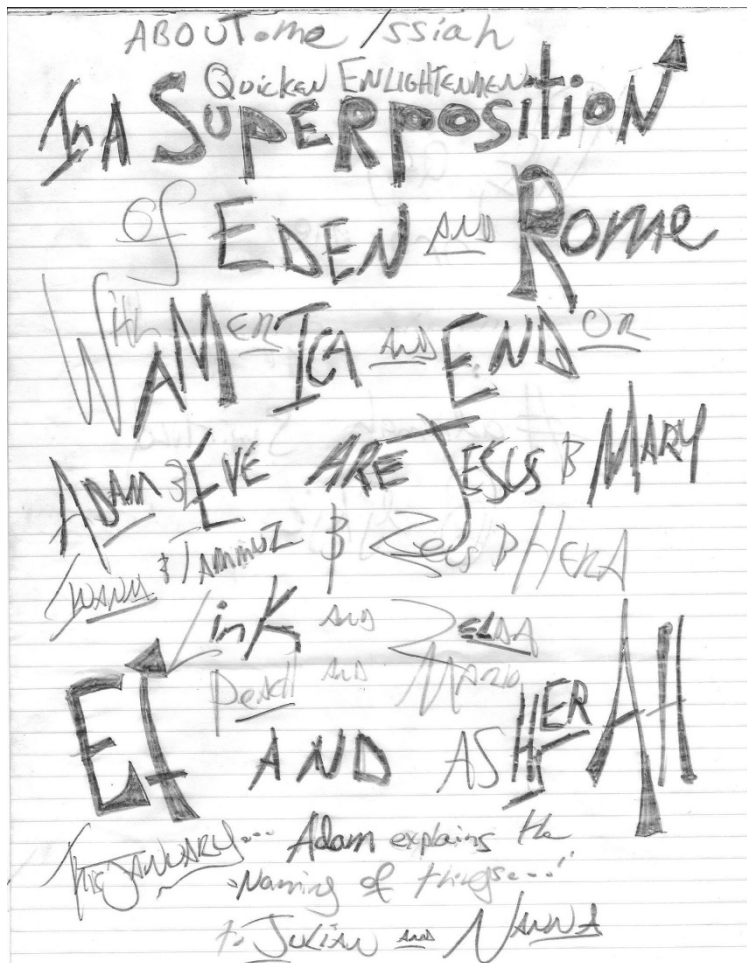 ABOUT.me/ssiah
QUICKEN ENLIGHTENMEN
In A SUPERPOSITION
Of EDEN AND ROME
WITH AMERICA AND ENDOR
ADAM & EVE ARE JESUS & MARY
& TAMMUZ & ZEUS & HERA
Link AND ZELDA
PEACH AND MARIO
El AND ASHERAH
THIS JANUARY... Adam explains the
"Naming of things..."
to JULIAN AND NANNA